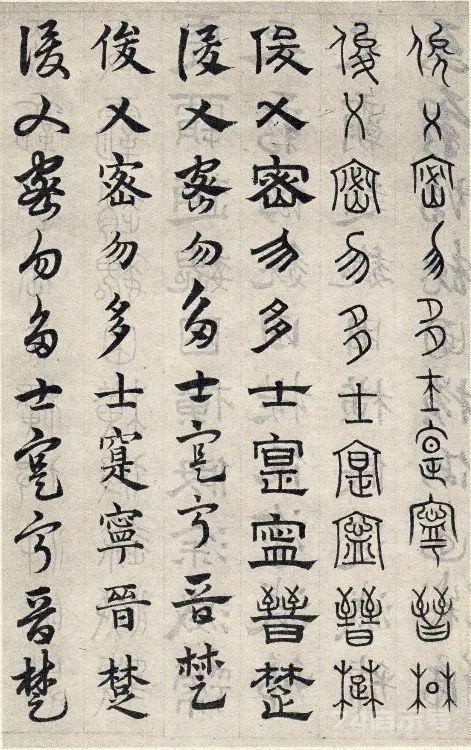 俊乂密勿多士寔寧晉楚
俊乂密勿多士寔寧晉楚
俊乂密勿多士寔寧晉楚
俊乂密勿多士寔寧晉楚
俊乂密勿多士寔寧晉楚
俊乂密勿多士寔寧晉楚